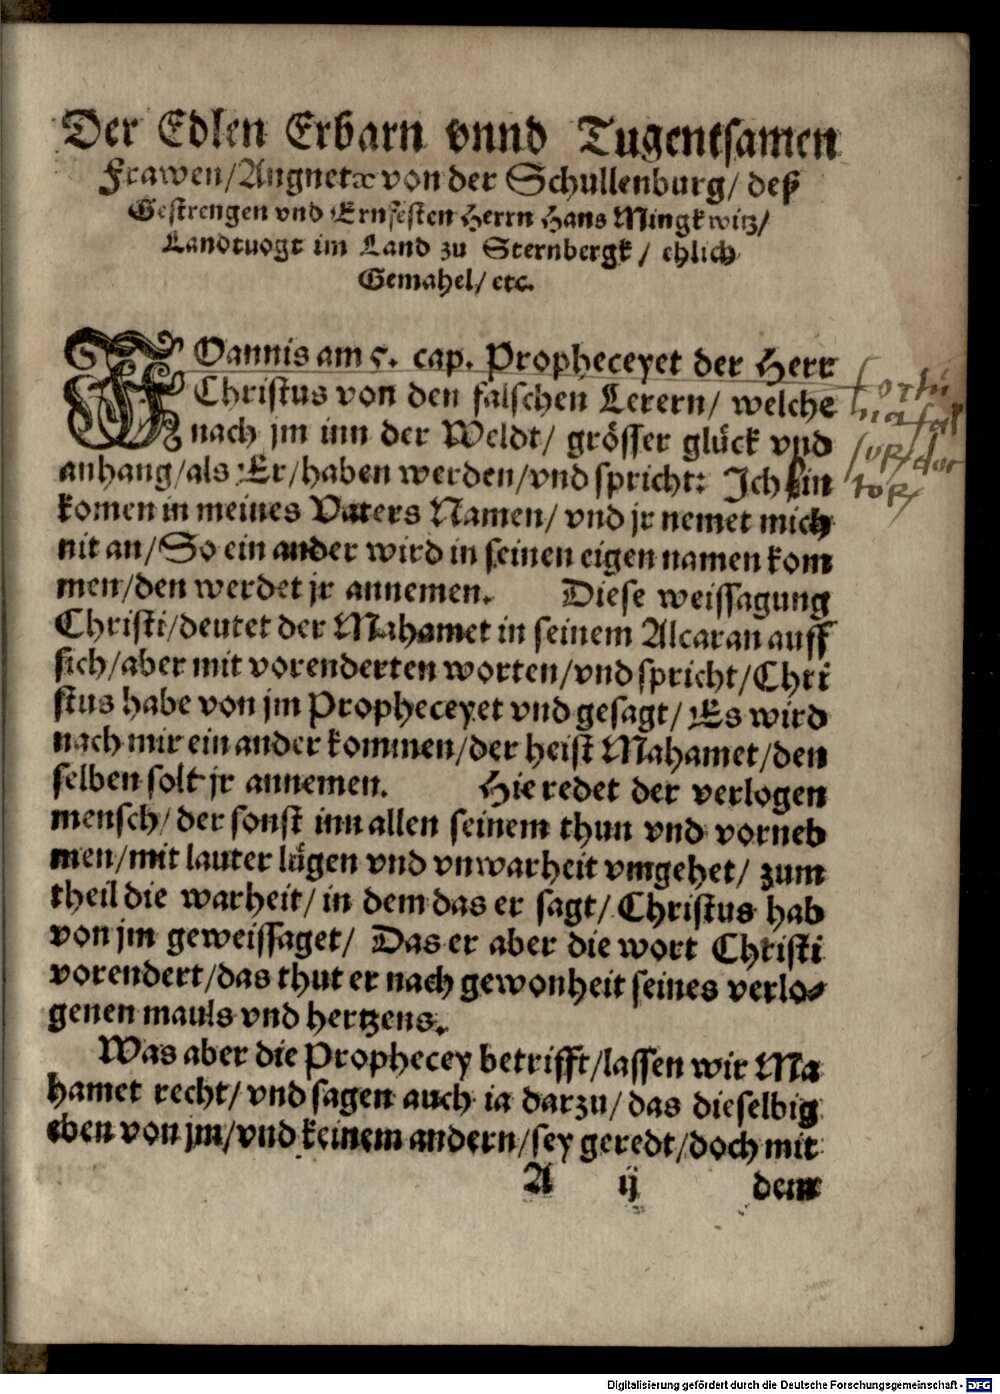 Der Edlen Erbarn vnnd Tugentsamen
Frawen/Angnetæ von der Schullenburg/ deß
Gestrengen vnd Ernfesten Herrn Hans Mingkwitz/
Landtuogt im Land zu Sternbergk/ ehlich
Gemahel/ etc.
IOannis am 5. cap. Propheceyet der Herr
Christus von den falschen Lerern/ welche
nach jm inn der Weldt/ grösser glück vnd
anhang/als Er/haben werden/vnd spricht: Ich bin
komen in meines Vaters Namen/ vnd jr nemet mich
nit an/So ein ander wird in seinen eigen namen kom
men/den werdet jr annemen. Diese weissagung
Christi/deutet der Mahamet in seinem Alcaran auff
sich/aber mit vorenderten worten/vnd spricht/Chri
stus habe von jm Propheceyet vnd gesagt/ Es wird
nach mir ein ander kommen/der heist Mahamet/den
selben solt jr annemen. Hie redet der verlogen
mensch/der sonst inn allen seinem thun vnd vorneh
men/mit lauter lügen vnd vnwarheit vmgehet/ zum
theil die warheit/ in dem das er sagt/ Christus hab
von jm geweissaget/ Das er aber die wort Christi
vorendert/das thut er nach gewonheit seines verlo-
genen mauls vnd hertzens.
Was aber die Prophecey betrifft/lassen wir Ma
hamet recht/ vnd sagen auch ia darzu/ das dieselbig
eben von jm/vnd keinem andern/sey geredt/doch mit
A ij dem
fortu
na fal
tor
Digitalisierung gefördert durch die Deutsche Forschungsgemeinschaft - DFG